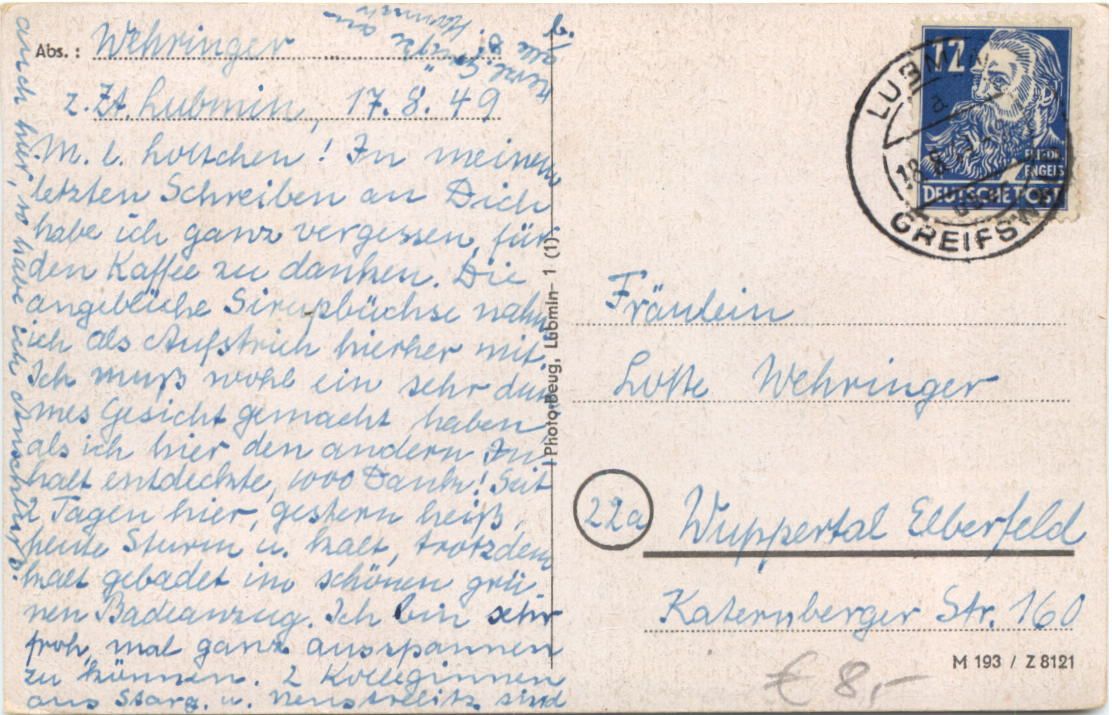 Abs.: Wehringer
z. Zt. Lubmin, 17.8.49
M. l. Lottchen! In meinem
letzten Schreiben an Dich
habe ich ganz vergessen, für
den Kaffee zu danken. Die
angebliche Sirupbüchse nahm
ich als Aufstrich hierher mit.
Ich muß wohl ein sehr dum
mes Gesicht gemacht haben,
als ich hier den andern In
halt entdeckte, 1000 Dank! Seit
2 Tagen hier, gestern heiß,
heute Sturm u. kalt, trotzdem
kalt gebadet im schönen grü-
nen Badeanzug. Ich bin sehr
froh, mal ganz ausspannen
zu können. 2 Kolleginnen
aus Starg. u. Neustrelitz sind
auch hier, so habe ich Anschluss.
Herzl. Grüße an
alle
Photo-Beug, Lubmin- 1 (1)
72
FRIEDR.
ENGELS
DEUTSCHE POST
LUBMIN
GREIFSW
Fräulein
Lotte Wehringer
22a Wuppertal Elberfeld
Katernberger Str. 160
M 193 / Z 8121
€ 8,-